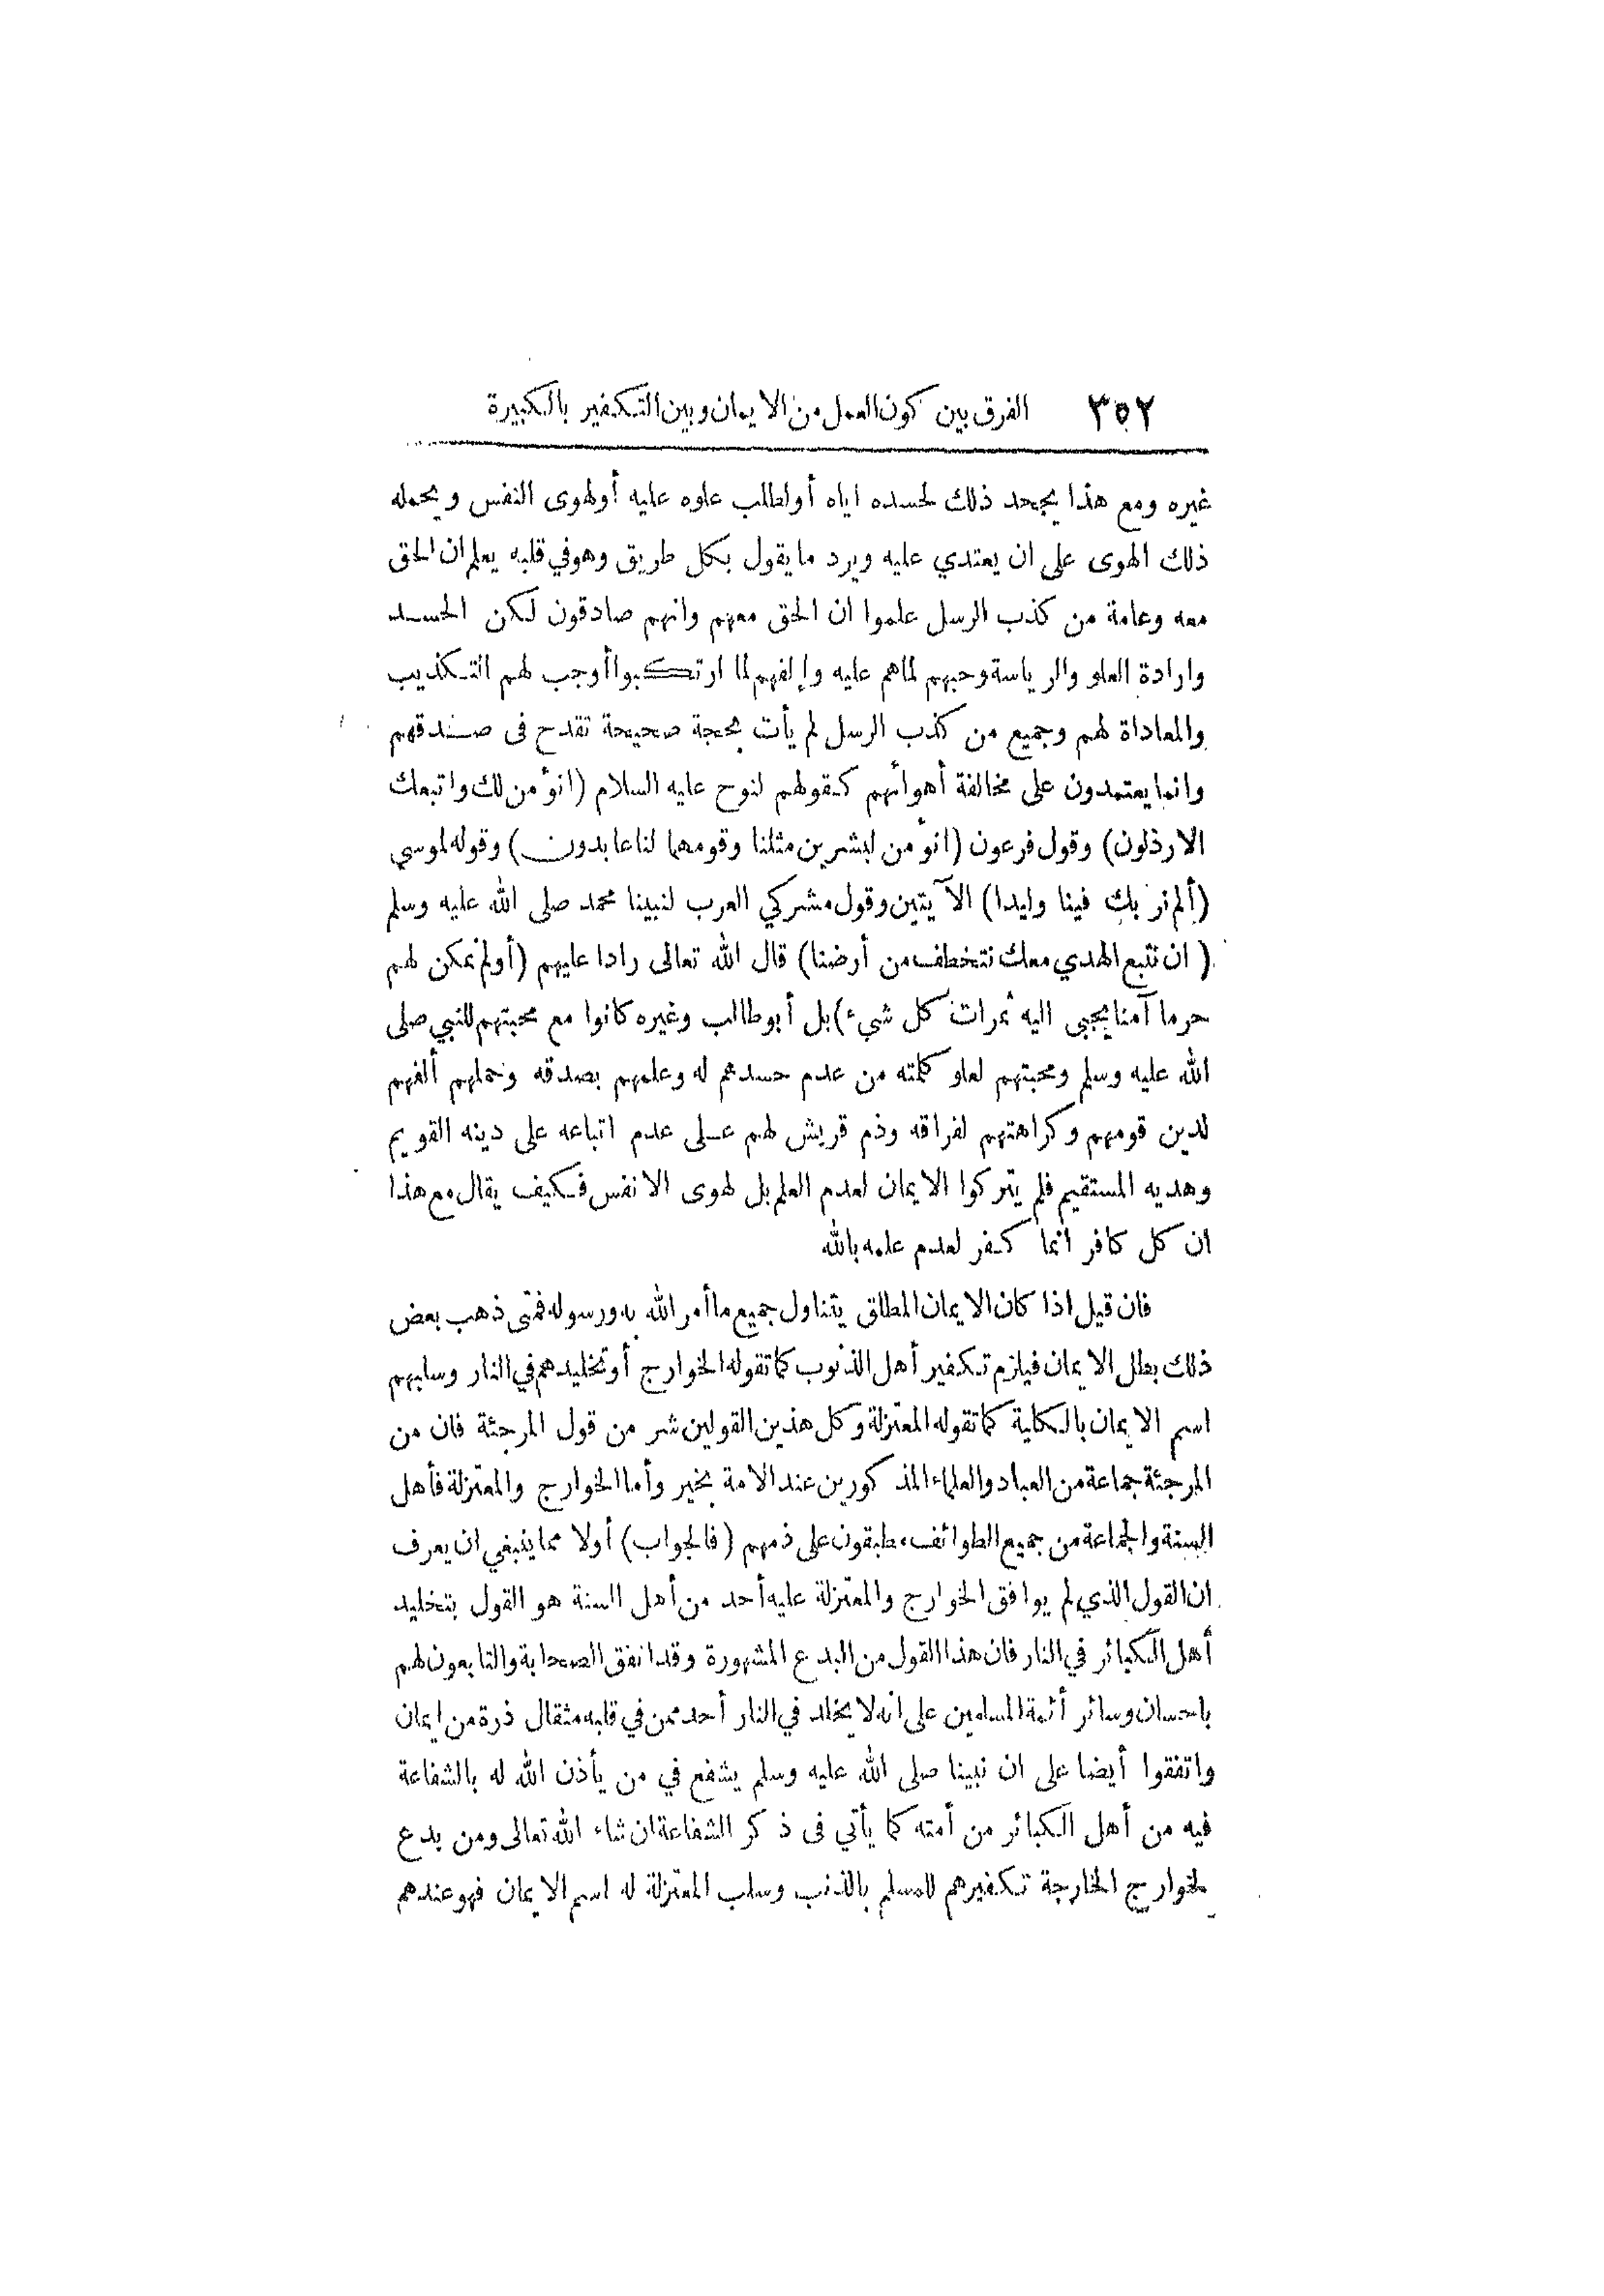 ٣٥٢ الفرق بين كون العمل من الايمان وبين التكفير بالكبيرة
غيره ومع هذا يجحد ذلك لحسده اياه أو لطلب علوه عليه أو لهوى النفس ويحمله
ذلك الهوى على ان يعتدي عليه ويرد ما يقول بكل طريق وهو في قلبه يعلم ان الحق
معه وعامة من كذب الرسل علموا ان الحق معهم وانهم صادقون لكن الحسد
وارادة العلو والرياسة وحبهم لما هم عليه وإلفهم لما ارتكبوا أوجب لهم التكذيب
والمعاداة لهم وجميع من كذب الرسل لم يأت بحجة صحيحة تقدح فى صدقهم
وانما يعتمدون على مخالفة أهوائهم كقولهم لنوح عليه السلام (انؤمن لك واتبعك
الارذلون) وقول فرعون (انؤمن لبشرين مثلنا وقومهما لنا عابدون) وقوله لموسي
(ألم نربك فينا وليدا) الآيتين وقول مشركي العرب لنبينا محمد صلى الله عليه وسلم
(ان نتبع الهدي معك نتخطف من أرضنا) قال الله تعالى رادا عليهم (أولم نمكن لهم
حرما آمنا يجبى اليه ثمرات كل شيء) بل أبو طالب وغيره كانوا مع محبتهم للنبي صلى
الله عليه وسلم ومحبتهم لعلو كلمته من عدم حسدهم له وعلمهم بصدقه وحملهم ألفهم
لدين قومهم وكراهتهم لفراقه وذم قريش لهم على عدم اتباعه على دينه القويم
وهديه المستقيم فلم يتركوا الايمان لعدم العلم بل لهوى الانفس فكيف يقال مع هذا
ان كل كافر انما كفر لعدم علمه بالله
فان قيل اذا كان الايمان المطلق يتناول جميع ما أمر الله به ورسوله فمتى ذهب بعض
ذلك بطل الايمان فيلزم تكفير أهل الذنوب كما تقوله الخوارج أو تخليدهم في النار وسلبهم
اسم الايمان بالكلية كما تقوله المعتزلة وكل هذين القولين شر من قول المرجئة فان من
المرجئة جماعة من العباد والعلماء المذكورين عند الامة بخير وأما الخوارج والمعتزلة فأهل
السنة والجماعة من جميع الطوائف مطبقون على ذمهم (فالجواب) أولا مما ينبغي ان يعرف
ان القول الذي لم يوافق الخوارج والمعتزلة عليه أحد من أهل السنة هو القول بتخليد
أهل الكبائر في النار فان هذا القول من البدع المشهورة وقد اتفق الصحابة والتابعون لهم
باحسان وسائر أئمة المسلمين على انه لا يخلد في النار أحد ممن في قلبه مثقال ذرة من ايمان
واتفقوا أيضا على ان نبينا صلى الله عليه وسلم يشفع في من يأذن الله له بالشفاعة
فيه من أهل الكبائر من أمته كما يأتي فى ذكر الشفاعة ان شاء الله تعالى ومن بدع
لخوارج الخارجة تكفيرهم للمسلم بالذنب وسلب المعتزلة له اسم الايمان فهو عندهم